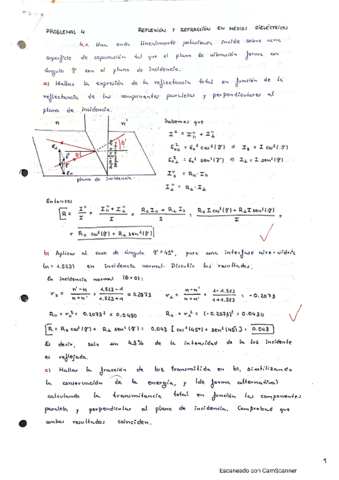 PROBLEMAS 4 REFLEXIÓN Y REFRACCIÓN EN MEDIOS DIELÉCTRICOS
4.1. Una onda linealmente polarizada incide sobre una
superficie de separación tal que el plano de vibración forma un
ángulo γ con el plano de incidencia.
a) Hallar la expresión de la reflectancia total en función de la
reflectancia de las componentes paralela y perpendiculares al
plano de incidencia.
n n'
plano de incidencia
Sabemos que
I" = I"∥ + I"⊥
I∥ = I cos²(γ)
I⊥ = I sen²(γ)
I"∥ = R∥ · I∥
I"⊥ = R⊥ · I⊥
Entonces
R = I"/I = (I"∥ + I"⊥)/I = (R∥ I∥ + R⊥ I⊥)/I = (R∥ I cos²(γ) + R⊥ I sen²(γ))/I =
= R∥ cos²(γ) + R⊥ sen²(γ)
b) Aplicar al caso de ángulo γ = 45°, para una interfase aire-vidrio
(n = 1.523) en incidencia normal. Discutir los resultados.
En incidencia normal (θ=0):
r∥ = (n'-n)/(n+n') = (1.523-1)/(1.523+1) = 0.2073 r⊥ = (n-n')/(n+n') = (1-1.523)/(1+1.523) = -0.2073
R∥ = r∥² = 0.2073² = 0.0430 R⊥ = r⊥² = (-0.2073)² = 0.0430
R = R∥ cos²(γ) + R⊥ sen²(γ) = 0.043 [cos²(45°) + sen²(45°)] = 0.043
Es decir, solo un 4.3% de la intensidad de la luz incidente
es reflejada.
c) Hallar la fracción de luz transmitida en b), utilizando
la conservación de la energía, y (de forma alternativa)
calculando la transmitancia total en función las componentes
paralela y perpendicular al plano de incidencia. Comprobad que
ambos resultados coinciden.
1
Escaneado con CamScanner